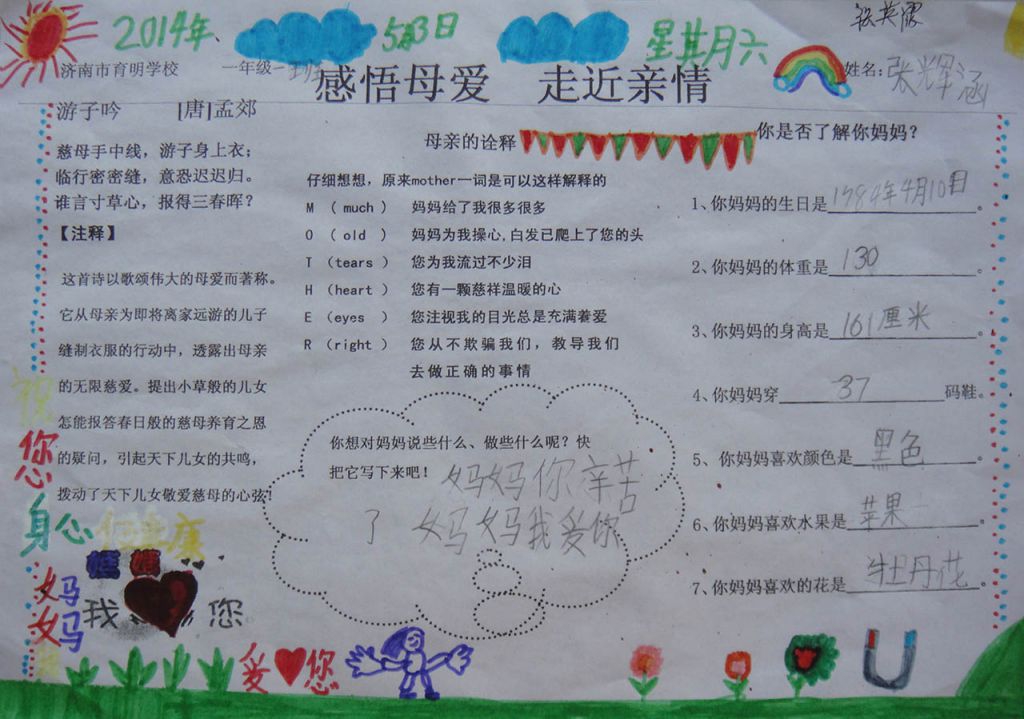 2014年 5月3日 星其月六
济南市育明学校 一年级一班
感悟母爱 走近亲情
姓名：张辉涵
游子吟 [唐]孟郊
慈母手中线，游子身上衣；
临行密密缝，意恐迟迟归。
谁言寸草心，报得三春晖？
【注释】
这首诗以歌颂伟大的母爱而著称。
它从母亲为即将离家远游的儿子
缝制衣服的行动中，透露出母亲
的无限慈爱。提出小草般的儿女
怎能报答春日般的慈母养育之恩
的疑问，引起天下儿女的共鸣，
拨动了天下儿女敬爱慈母的心弦！
母亲的诠释
仔细想想，原来mother一词是可以这样解释的
M （much） 妈妈给了我很多很多
O （old） 妈妈为我操心,白发已爬上了您的头
T （tears） 您为我流过不少泪
H （heart） 您有一颗慈祥温暖的心
E （eyes） 您注视我的目光总是充满着爱
R （right） 您从不欺骗我们，教导我们
去做正确的事情
你想对妈妈说些什么、做些什么呢？快
把它写下来吧！ 妈妈你辛苦
了 妈妈我爱你
你是否了解你妈妈？
1、你妈妈的生日是1984年4月10日。
2、你妈妈的体重是130。
3、你妈妈的身高是161厘米。
4、你妈妈穿37码鞋。
5、你妈妈喜欢颜色是黑色。
6、你妈妈喜欢水果是苹果。
7、你妈妈喜欢的花是牡丹花。
祝
您
身心健康
妈妈
我 您
妈
妈
爱 您